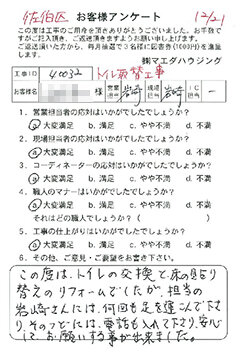 佐伯区 お客様アンケート 12/21
この度は工事のご用命を頂きありがとうございました。お手数で
すがご記入頂き、ご返送頂きますようお願い申し上げます。
ご返送頂いた方から、毎月抽選で3名様に図書券(1000円)を進呈
します。
㈱マエダハウジング
工事ID 40032 トイレ取替工事
お客様名 様 営業担当 岩崎 現場担当 岩崎 IC担当 ー
1. 営業担当者の応対はいかがでしたでしょうか?
a 大変満足 b. 満足 c. やや不満 d. 不満
2. 現場担当者の応対はいかがでしたでしょうか?
a 大変満足 b. 満足 c. やや不満 d. 不満
3. コーディネーターの応対はいかがでしたでしょうか?
a 大変満足 b. 満足 c. やや不満 d. 不満
4. 職人のマナーはいかがでしたでしょうか?
a 大変満足 b. 満足 c. やや不満 d. 不満
それはどの職人でしょうか?( )
5. 工事の仕上がりはいかがでしたでしょうか?
a 大変満足 b. 満足 c. やや不満 d. 不満
6. その他、ご意見・ご要望をお書き下さい。
この度は、トイレの交換と床の貼り
替えのリフォームでしたが、担当の
岩崎さんには、何回も足を運んで下さ
り、そのつどには、電話も入れて下さり、安心
して、お願いする事が出来ました。